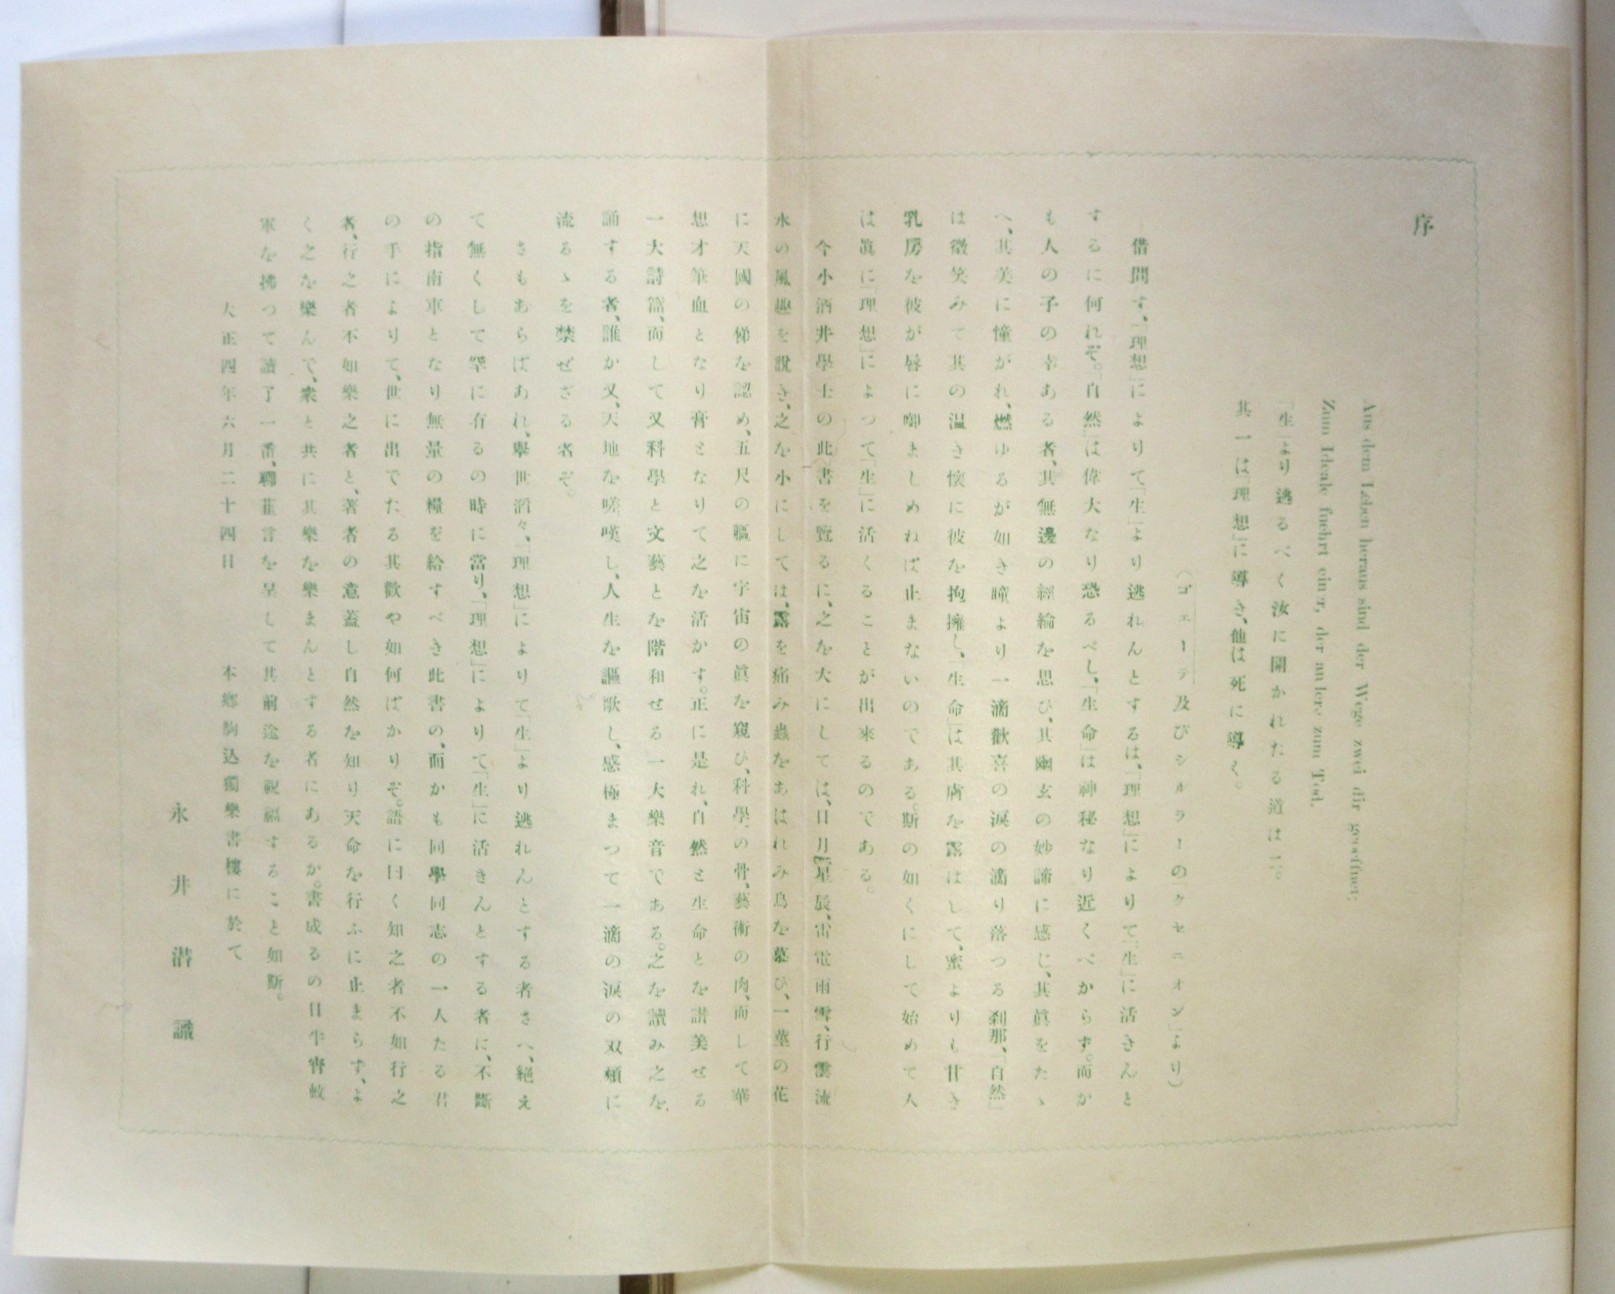 序
Aus dem Leben heraus sind der Wege zwei dir geoeffnet:
Zum Ideale fuehrt einer, der andere zum Tod.
「生」より逃るべく汝に開かれたる道は二。
其一は「理想」に導き、他は死に導く。
(ゴエーテ及びシルラーの「クセニオン」より)
借問す、「理想」によりて「生」より逃れんとするは、「理想」によりて「生」に活きんと
するに何れぞ。「自然」は偉大なり恐るべし、「生命」は神秘なり近くべからず。而か
も人の子の幸ある者、其無邊の經綸を思ひ、其幽玄の妙諦に感じ、其眞をたゝ
へ、其美に憧がれ、燃ゆるが如き瞳より一滴歡喜の淚の滴り落つる刹那、「自然」
は微笑みて其の温き懷に彼を抱擁し、「生命」は其膚を露はして、蜜よりも甘き
乳房を彼が唇に啣ましめねば止まないのである。斯の如くにして始めて人
は眞に「理想」によつて「生」に活くることが出来るのである。
今小酒井學士の此書を覽るに、之を大にしては、日月星辰、雷電雨雪、行雲流
水の風趣を說き、之を小にしては、露を痛み蟲をあはれみ鳥を慕ひ、一莖の花
に天國の俤を認め、五尺の軀に宇宙の眞を窺ひ、科學の骨、藝術の肉、而して華
想才筆血となり膏となりて之を活かす。正に是れ、自然と生命とを讃美せる
一大詩篇、而して又科學と文藝とを階和せる一大樂音である。之を讀み之を
誦する者、誰か又、天地を嗟嘆し、人生を謳歌し、感極まつて一滴の淚の双頰に
流るゝを禁ぜざる者ぞ。
さもあらばあれ、擧世滔々、「理想」によりて「生」より逃れんとする者さへ、絕え
て無くして罕に有るの時に當り、「理想」によりて「生」に活きんとする者に、不斷
の指南車となり無量の糧を給すべき此書の、而かも同學同志の一人たる君
の手によりて、世に出でたる其歡や如何ばかりぞ。語に曰く知之者不如行之
者、行之者不如樂之者と、著者の意蓋し自然を知り天命を行ふに止まらず、よ
く之を樂んで、衆と共に其樂を樂まんとする者にあるか。書成るの日半宵蚊
軍を拂つて讀了一番、聊蕪言を呈して其前途を祝福すること如斯。
大正四年六月二十四日　本鄕駒込獨樂書樓に於て
永井潜識